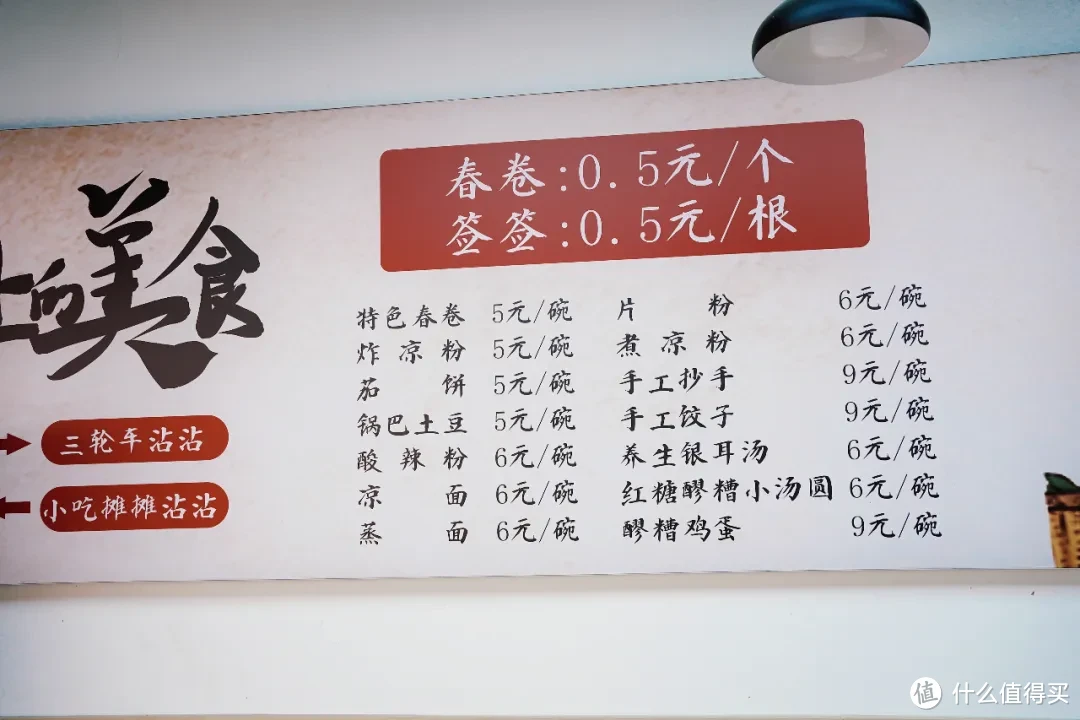 春卷:0.5元/个
签签:0.5元/根
的美食
三轮车沾沾
小吃摊摊沾沾
特色春卷 5元/碗 片粉 6元/碗
炸凉粉 5元/碗 煮凉粉 6元/碗
茄饼 5元/碗 手工抄手 9元/碗
锅巴土豆 5元/碗 手工饺子 9元/碗
酸辣粉 6元/碗 养生银耳汤 6元/碗
凉面 6元/碗 红糖醪糟小汤圆 6元/碗
蒸面 6元/碗 醪糟鸡蛋 9元/碗
值 什么值得买